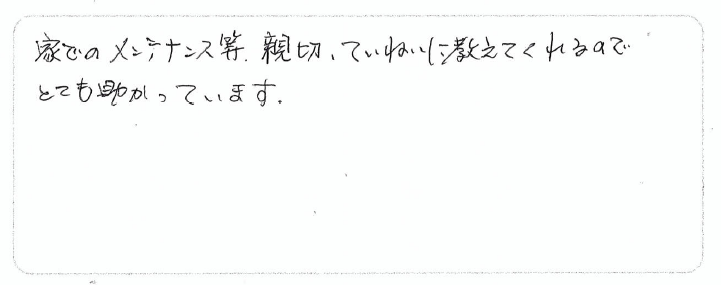 家でのメンテナンス等、親切、ていねいに教えてくれるので
とても助かっています。